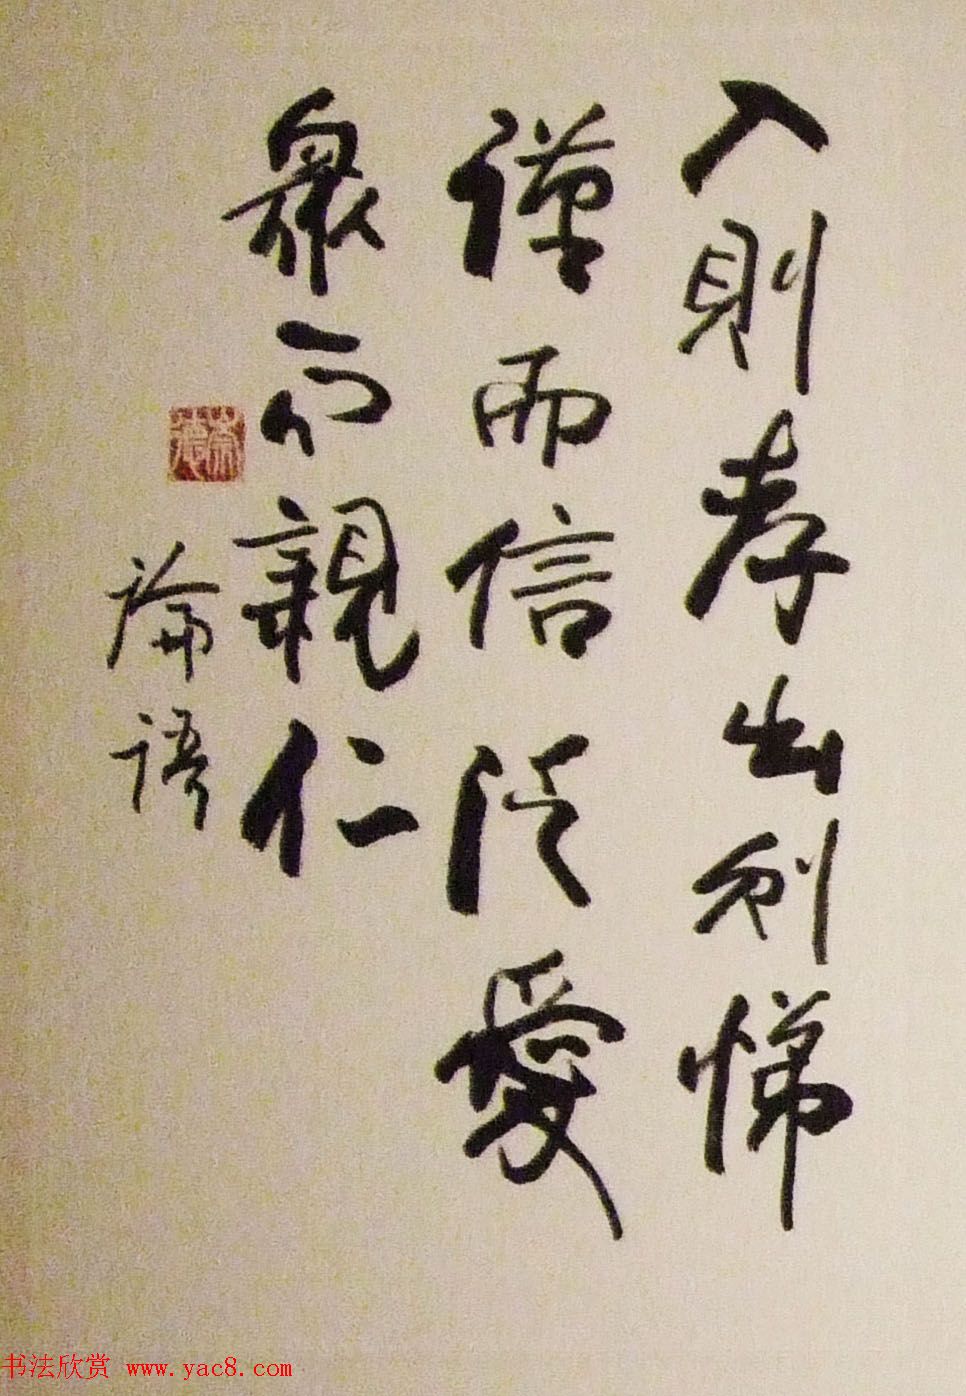 入則孝出則悌
謹而信泛愛
衆而親仁
論語
崇德
书法欣赏 www.yac8.com